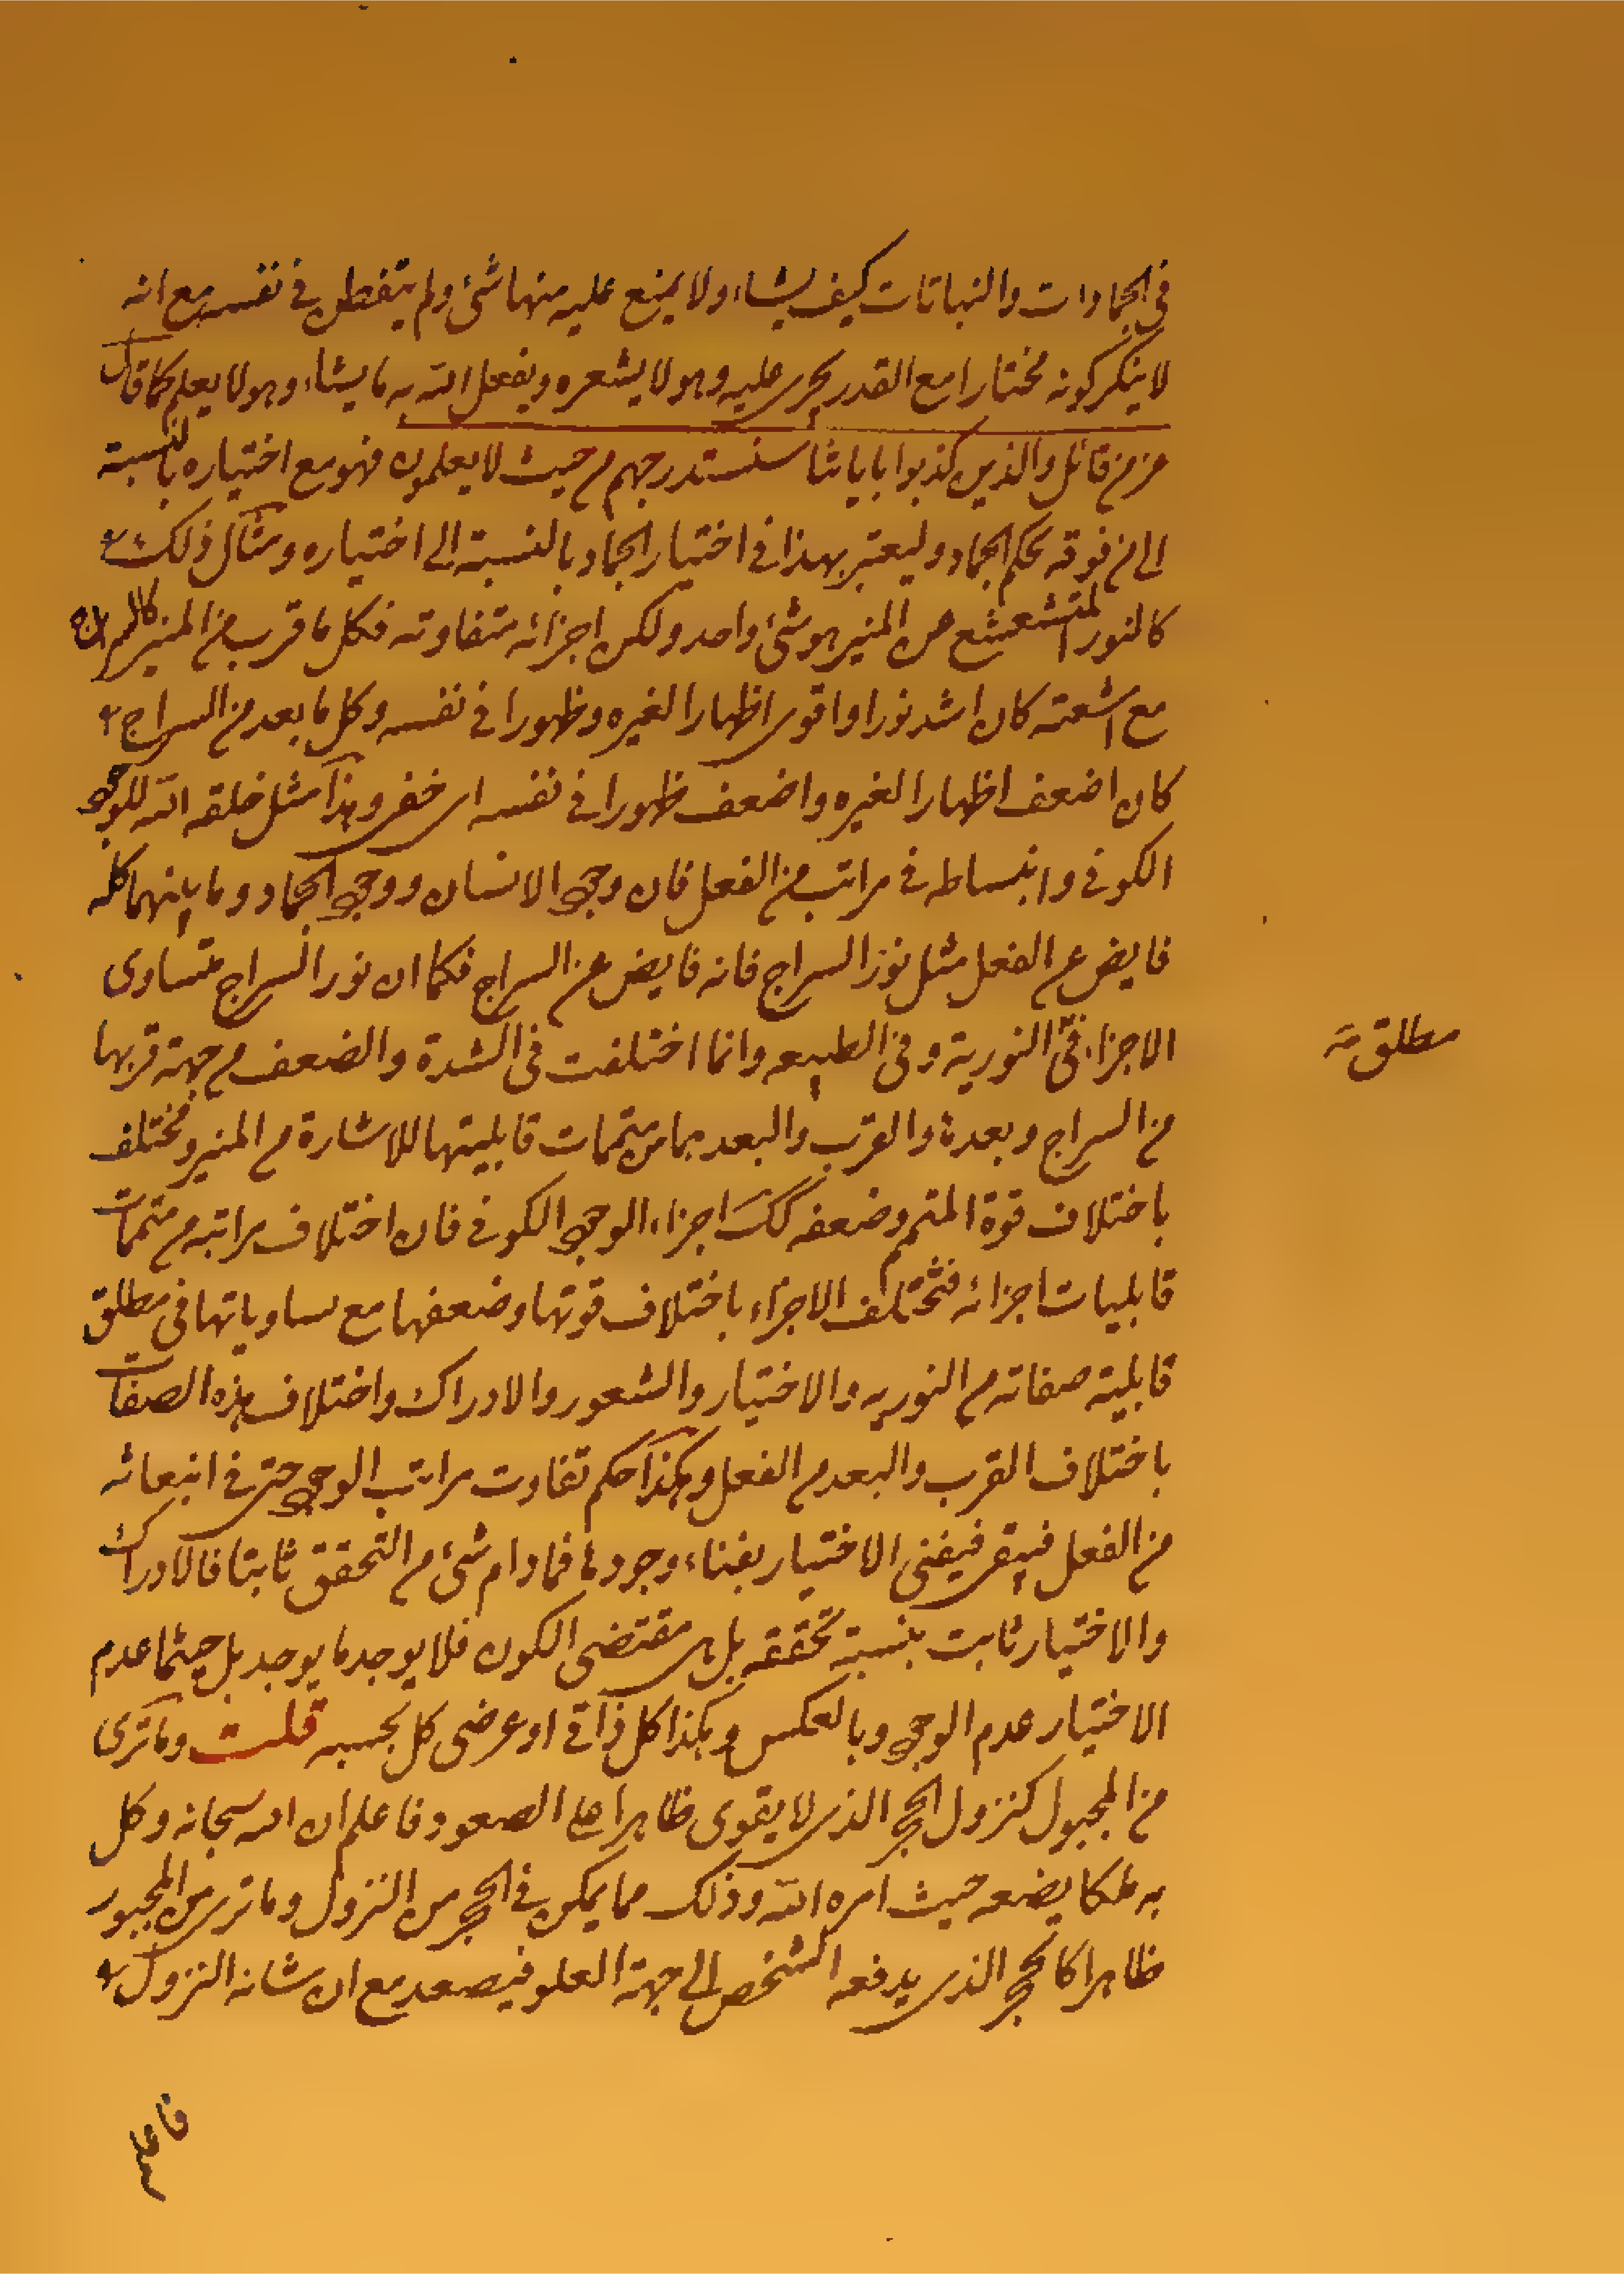 في الجمادات والنباتات كيف يشاء ولا يمنع عليه منها شئ ولم يتفطن في نفسه مع انه
لا ينكر كونه مختارا مع القدر يجرى عليه وهو لا يشعره ويفعل الله به ما يشاء وهو لا يعلم كما قال
عز من قائل والذين كذبوا باياتنا سنستدرجهم من حيث لا يعلمون فهو مع اختياره بالنسبة
الى من فوقه بحكم الجماد وليعتبر بهذا في اختيار الجماد بالنسبة الى اختياره ومثال ذلك
كالنور المتشعشع من المنير هو شئ واحد ولكن اجزائه متفاوته فكل ما قرب من المنير كالسراج
مع اشعته كان اشد نورا واقوى اظهارا لغيره وظهورا في نفسه وكل ما بعد من السراج
كان اضعف اظهارا لغيره واضعف ظهورا في نفسه اى خفى وهذا مثل خلقه الله للوجود
الكونى وانبساطه في مراتبه من الفعل فان وجود الانسان ووجود الجماد وما بينهما كله
فايض عن الفعل مثل نور السراج فانه فايض عن السراج فكما ان نور السراج متساوى
الاجزاء في النورية وفي الطبيعه وانما اختلفت في الشدة والضعف من جهة قربها
مطلق
من السراج وبعدها والقرب والبعد هما من متممات قابليتها للاشارة من المنير وتختلف
باختلاف قوة المتمم وضعفه كك اجزاء الوجود الكونى فان اختلاف مراتبه من متممات
قابليات اجزائه فتختلف الاجزاء باختلاف قوتها وضعفها مع تساوياتها في مطلق
قابلية صفاته من النوريه والاختيار والشعور والادراك واختلاف هذه الصفات
باختلاف القرب والبعد من الفعل وهكذا حكم تفاوت مراتب الوجود حتى في انبعاثه
من الفعل فيبقى فيفنى الاختيار بفناء وجودها فمادام شئ من التحقق ثابتا فالادراك
والاختيار ثابت بنسبة تحققه بل هى مقتضى الكون فلا يوجد ما يوجد بل حيثما عدم
الاختيار عدم الوجود وبالعكس وهكذا كل ذاتى او عرضى كل بحسبه قلت وما ترى
من المجبول كنزول الحجر الذى لا يقوى ظاهرا على الصعود فاعلم ان الله سبحانه وكل
به ملكا يضعه حيث امره الله وذلك مما يمكن في الحجر من النزول وما ترى من المجبور
ظاهرا كالحجر الذى يدفعه الشخص الى جهة العلو فيصعد مع ان شانه النزول
فاعلم